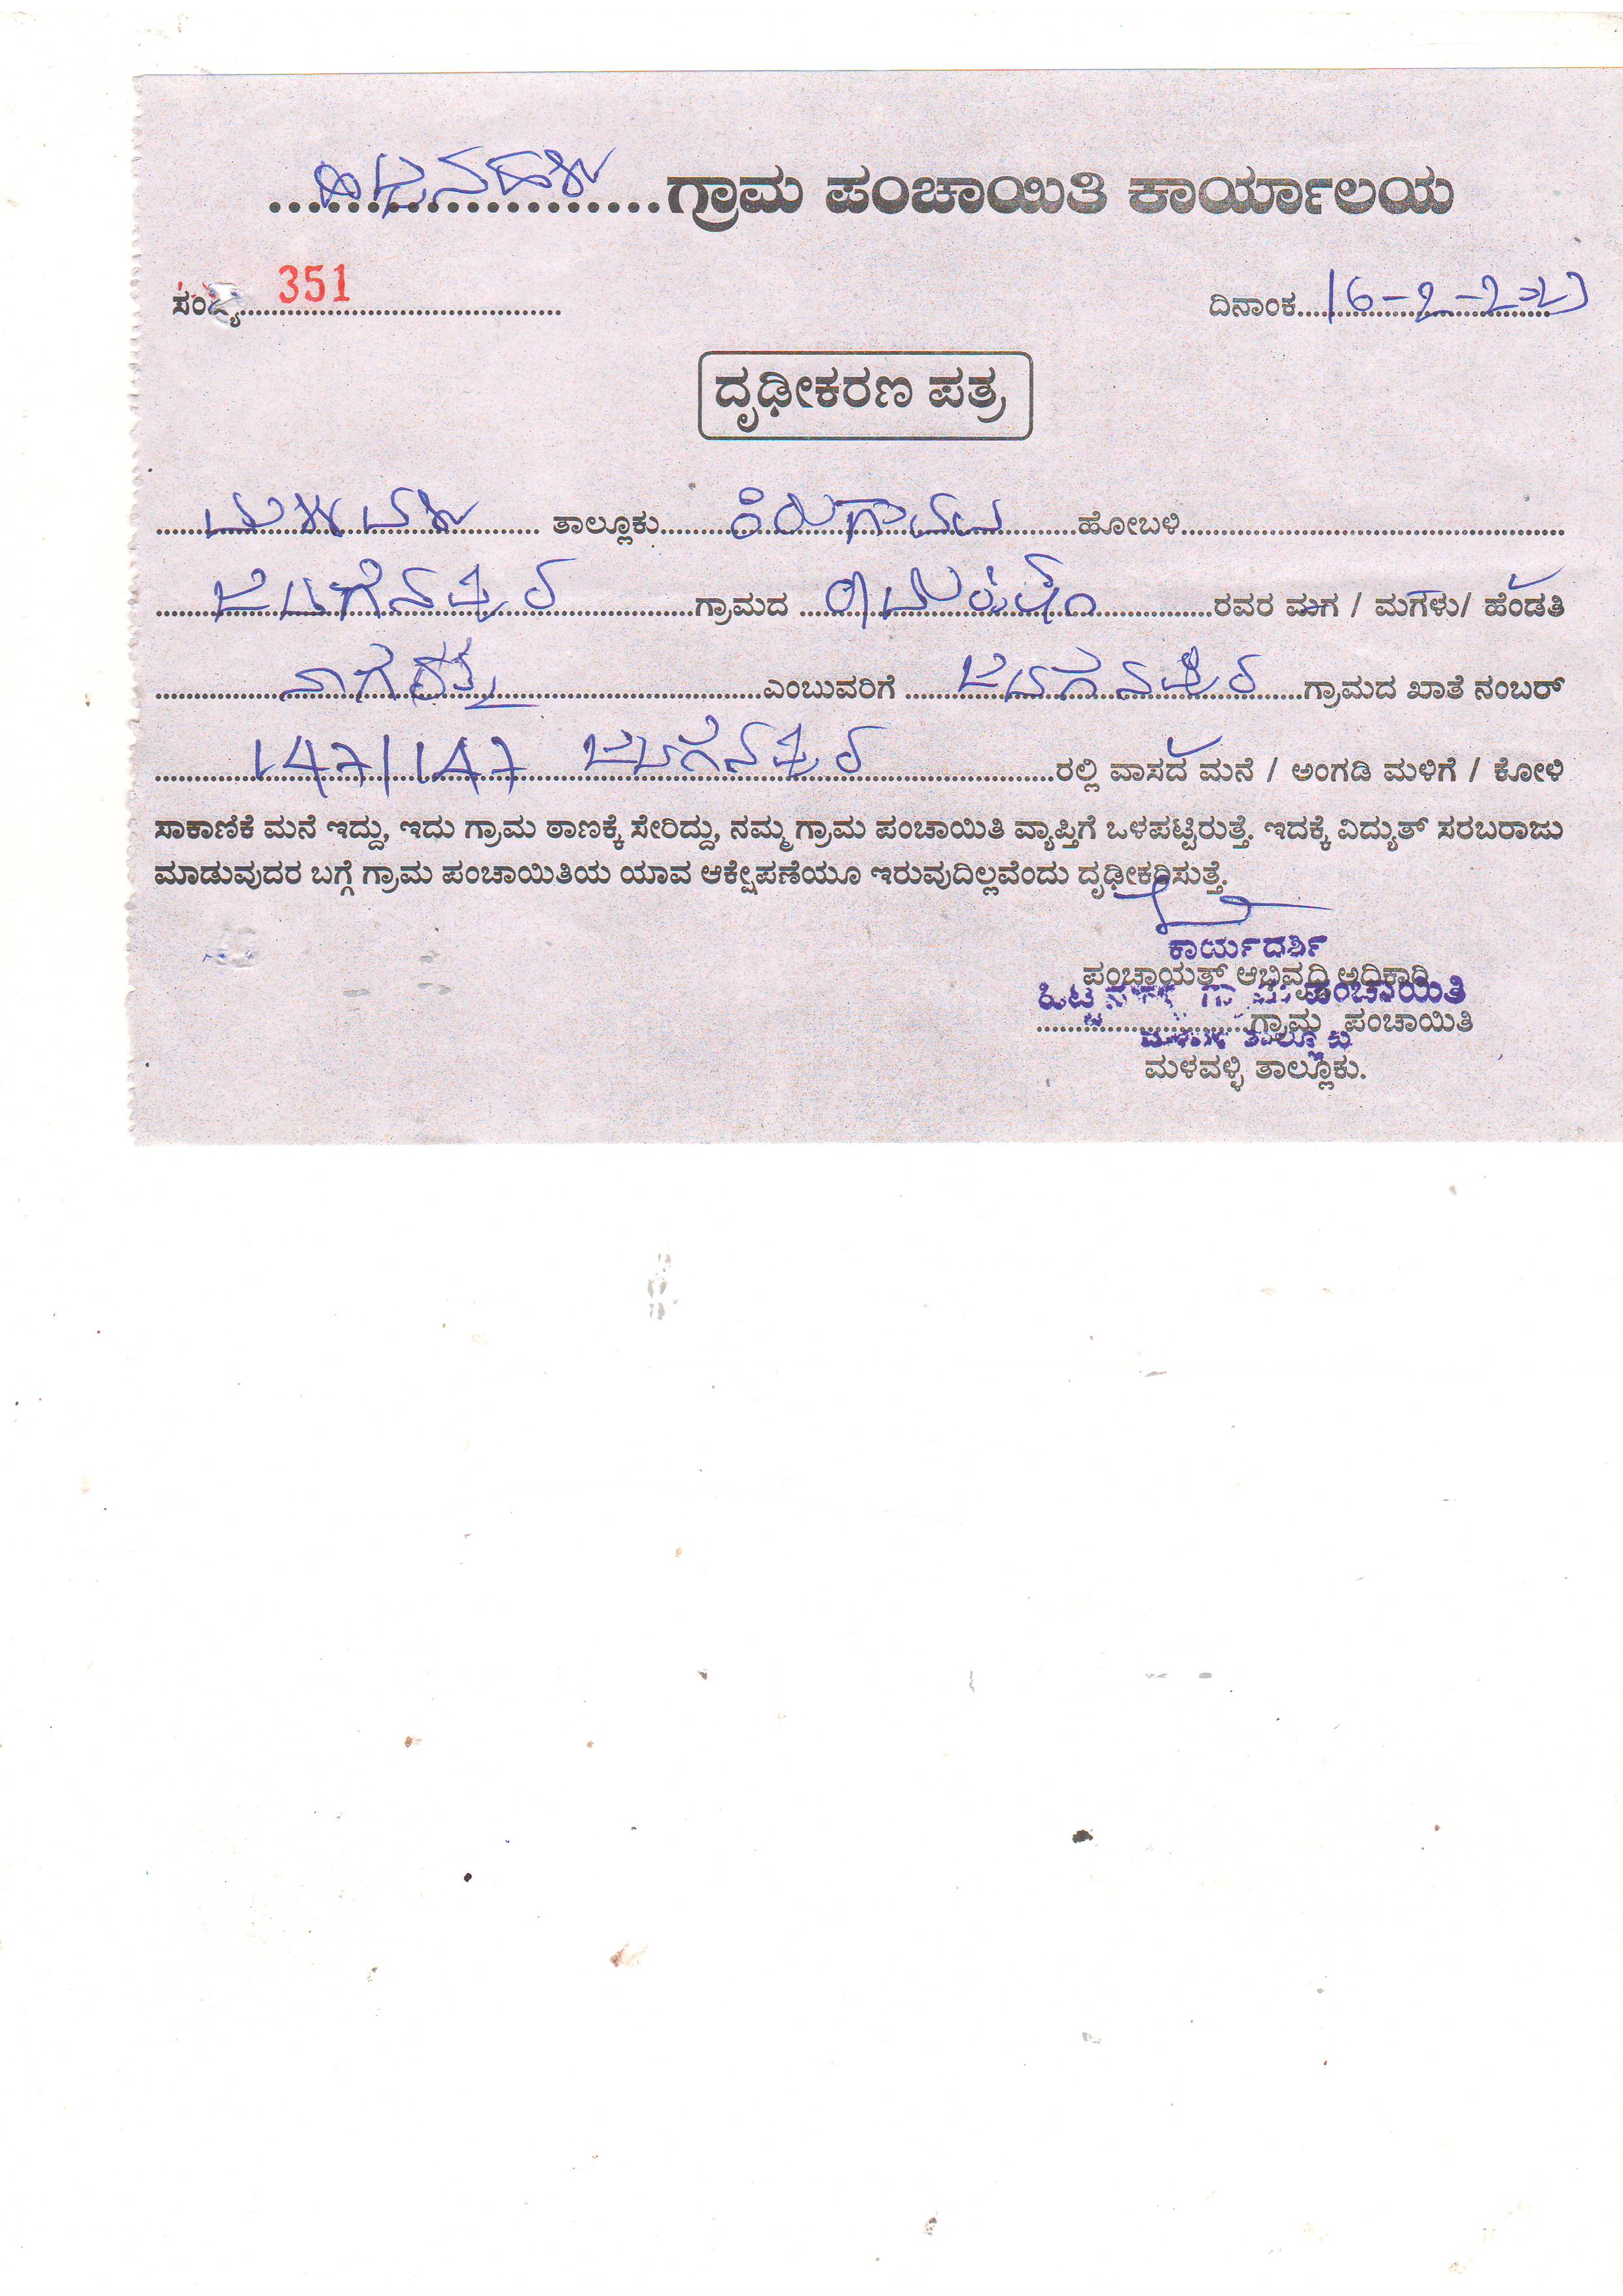 ....................ಗ್ರಾಮ ಪಂಚಾಯಿತಿ ಕಾರ್ಯಾಲಯ
ಸಂಖ್ಯೆ 351 ದಿನಾಂಕ 16-2-
ದೃಢೀಕರಣ ಪತ್ರ
ಮಳವಳ್ಳಿ ತಾಲ್ಲೂಕು ಕಿರುಗಾವಲು ಹೋಬಳಿ
ಗ್ರಾಮದ ರವರ ಮಗ / ಮಗಳು/ ಹೆಂಡತಿ
ನಾಗರತ್ನ ಎಂಬುವರಿಗೆ ಗ್ರಾಮದ ಖಾತೆ ನಂಬರ್
147/147 ರಲ್ಲಿ ವಾಸದ ಮನೆ / ಅಂಗಡಿ ಮಳಿಗೆ / ಕೋಳಿ
ಸಾಕಾಣಿಕೆ ಮನೆ ಇದ್ದು, ಇದು ಗ್ರಾಮ ಠಾಣಕ್ಕೆ ಸೇರಿದ್ದು, ನಮ್ಮ ಗ್ರಾಮ ಪಂಚಾಯಿತಿ ವ್ಯಾಪ್ತಿಗೆ ಒಳಪಟ್ಟಿರುತ್ತೆ. ಇದಕ್ಕೆ ವಿದ್ಯುತ್ ಸರಬರಾಜು
ಮಾಡುವುದರ ಬಗ್ಗೆ ಗ್ರಾಮ ಪಂಚಾಯಿತಿಯ ಯಾವ ಆಕ್ಷೇಪಣೆಯೂ ಇರುವುದಿಲ್ಲವೆಂದು ದೃಢೀಕರಿಸುತ್ತೆ.
ಕಾರ್ಯದರ್ಶಿ
ಪಂಚಾಯತ್ ಅಭಿವೃದ್ಧಿ ಅಧಿಕಾರಿ
ಪಂಚಾಯಿತಿ
ಗ್ರಾಮ ಪಂಚಾಯಿತಿ
ಮಳವಳ್ಳಿ ತಾಲ್ಲೂಕು.